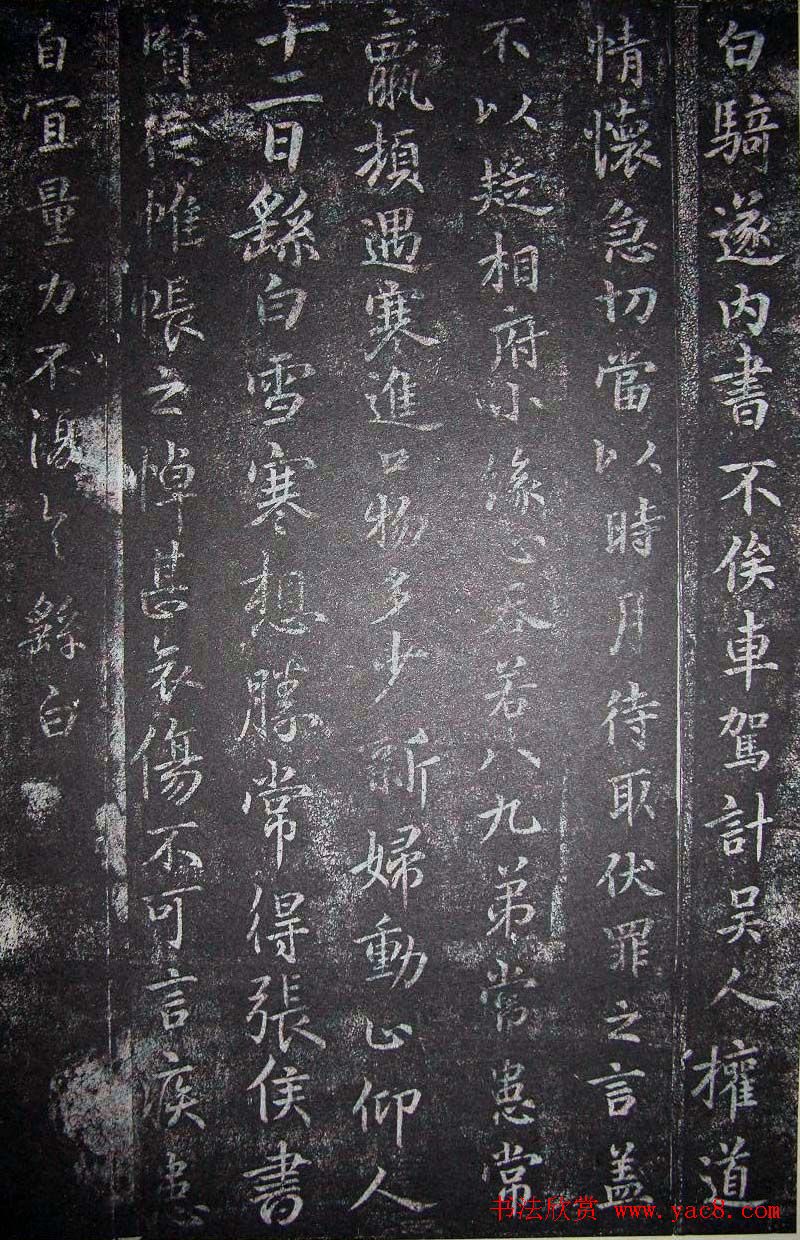 白騎遂内書不俟車駕計吴人權道
情懷急切當以時月待取伏罪之言蓋
不以疑相府小緣心吞若八九弟常患常
羸頓遇寒進口物多少新婦動止仰人
十二日繇白雪寒想勝常得張侯書
賢從帷帳之悼甚哀傷不可言疾患
自宜量力不復繇白
书法欣赏 www.yac8.com